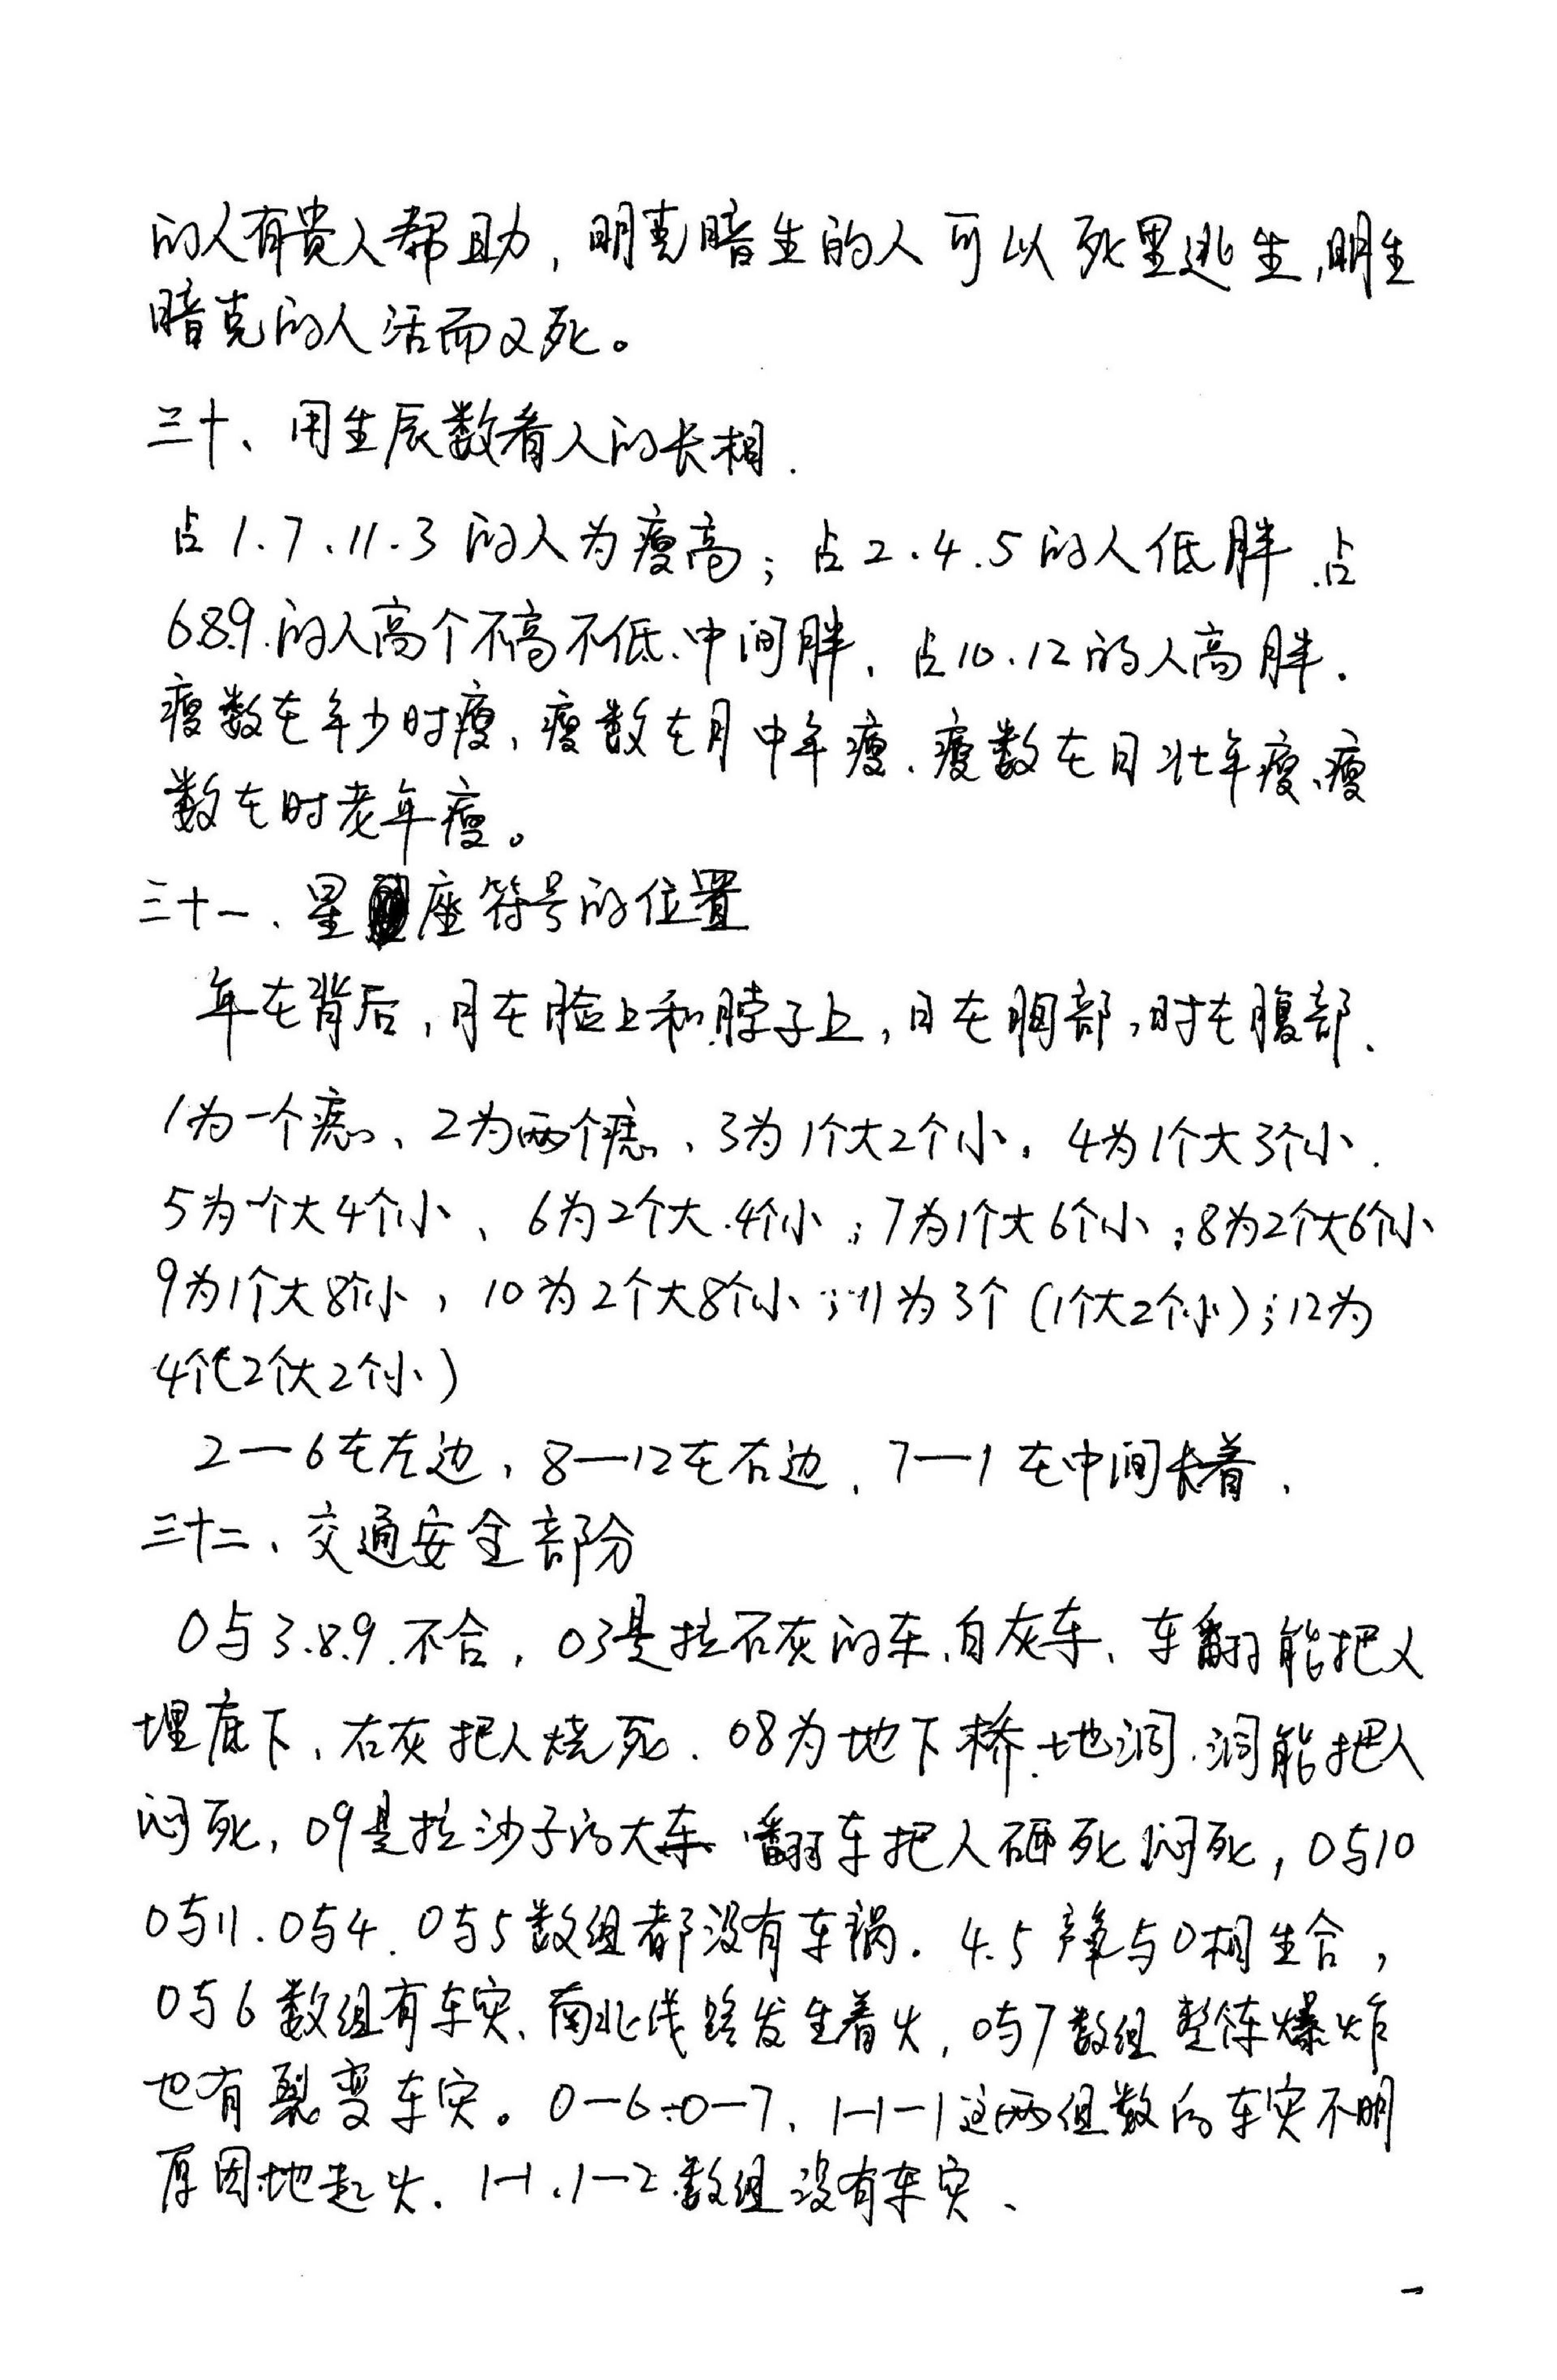 的人有贵人帮助，明克暗生的人可以死里逃生，明生
暗克的人活而又死。
三十、用生辰数看人的长相.
占1.7.11.3的人为瘦高；占2.4.5的人低胖.占
6.8.9.的人高个不高不低、中间胖、占10.12的人高胖.
瘦数在年少时瘦、瘦数在月中年瘦、瘦数在日壮年瘦、瘦
数在时老年瘦。
三十一、星座符号的位置
年在背后，月在脸上和脖子上，日在胸部，时在腹部.
1为一个痣、2为两个痣、3为1个大2个小，4为1个大3个小.
5为一个大4个小、6为2个大.4个小；7为1个大6个小；8为2个大6个小
9为1个大8个小，10为2个大8个小；11为3个（1个大2个小）；12为
4个（2个大2个小）
2—6在左边，8—12在右边，7—1在中间长着.
三十二、交通安全部分
0与3.8.9.不合，03是拉石灰的车、白灰车、车翻能把人
埋底下、石灰把人烧死.08为地下桥.地洞.洞能把人
闷死，09是拉沙子的大车 翻车把人砸死闷死，0与10
0与11.0与4.0与5数组都没有车祸.4.5与0相生合，
0与6数组有车灾、南北线路发生着火，0与7数组整体爆炸
也有裂变车灾。0—6÷0—7、1—1—1这两组数的车灾不明
原因地起火.1—1.1—2.数组没有车灾、